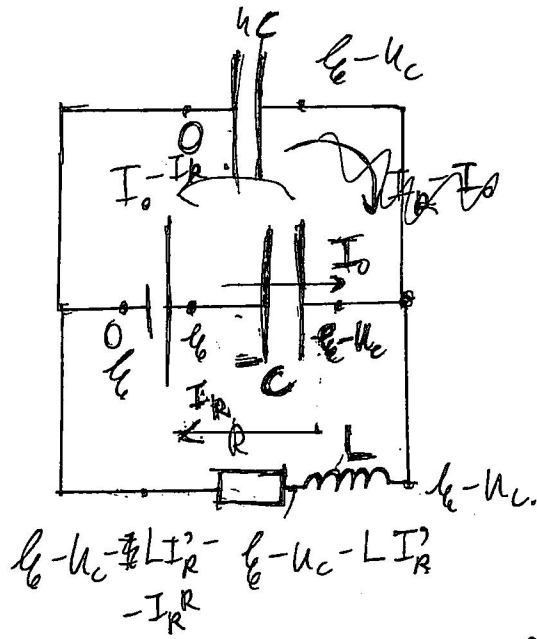 4C
ℰ-U_C
0
I_0-I_R
I_R-I_0
I_0
0
ℰ
ℰ
ℰ-U_C
C
I_R
R
L
ℰ-U_C.
ℰ-U_C-LI'_R-
-I_R R
ℰ-U_C-LI'_R